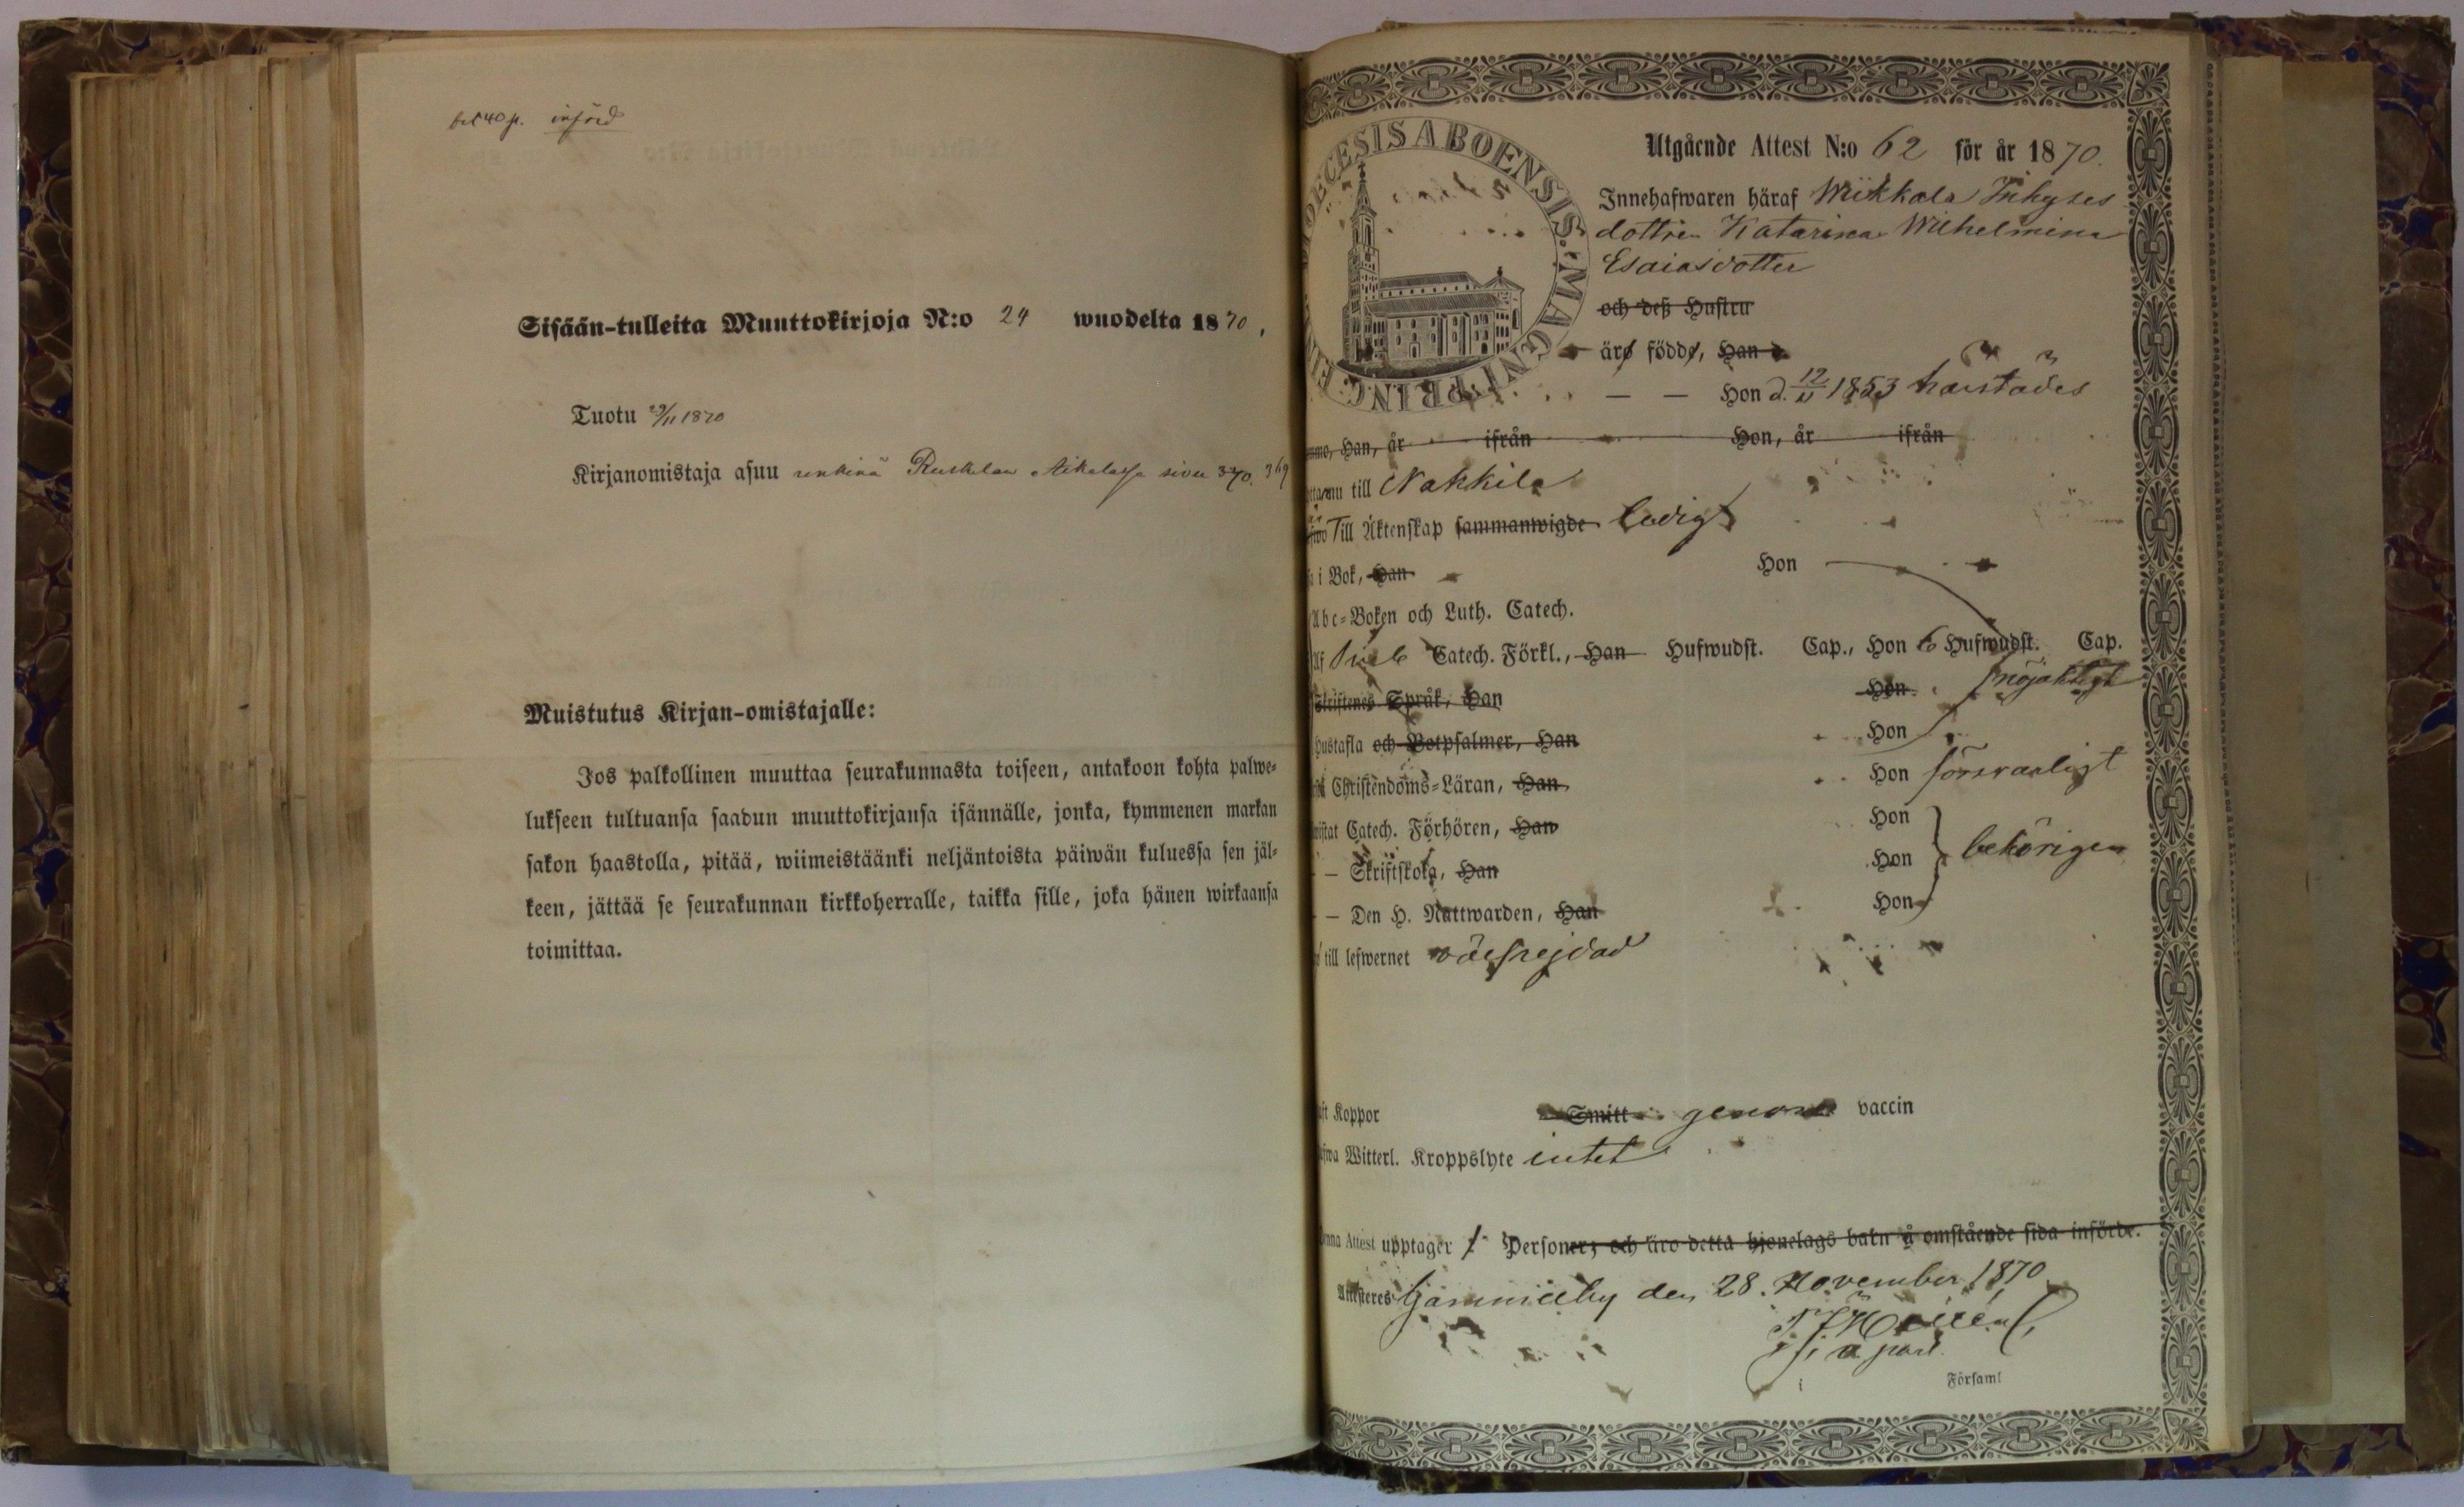 införd
Sisään-tulleita Muuttokirjoja N:o 24 wuodelta 1870.
Tuotu 29/11 1870
Kirjanomistaja asuu renkinä Ruskilan sivu 370. 369
Muistutus Kirjan-omistajalle:
Jos palkollinen muuttaa seurakunnasta toiseen, antakoon kohta palwe=
lukseen tultuansa saadun muuttokirjansa isännälle, jonka, kymmenen markan
sakon haastolla, pitää, wiimeistäänki neljäntoista päiwän kuluessa sen jäl=
keen, jättää se seurakunnan kirkkoherralle, taikka sille, joka hänen wirkaansa
toimittaa.
DIOECESIS ABOENSIS. MAGNI PRINC.
Utgående Attest N:o 62 för år 1870.
Innehafwaren häraf Mikkola Inhyses
dottren Katarina Wilhelmina
Esaiasdotter
och deß Hustru
äro födde, Han
— — Hon d. 12/11 1853 härstädes
Han, år ifrån Hon, år ifrån
nu till Nakkila
Till Äktenskap sammanwigde ledig
i Bok, Han Hon
Abc=Boken och Luth. Catech.
Af Catech. Förkl., Han Hufwudst. Cap., Hon 6 Hufwudst. Cap.
Skriftenes Språk, Han Hon nöjaktigt
Hustafla och Botpsalmer, Han Hon
Christendoms=Läran, Han Hon försvarligt
Catech. Förhören, Han Hon
— Skriftskola, Han Hon behörigen
— Den H. Nattwarden, Han Hon
till lefwernet välfrejdad
Koppor Smitt genom vaccin
Witterl. Kroppslyte intet
Attest upptager 1 Personer; och äro detta hjonelags barn å omstående sida införde.
Attesteres Gammelby den 28. November 1870
Församl